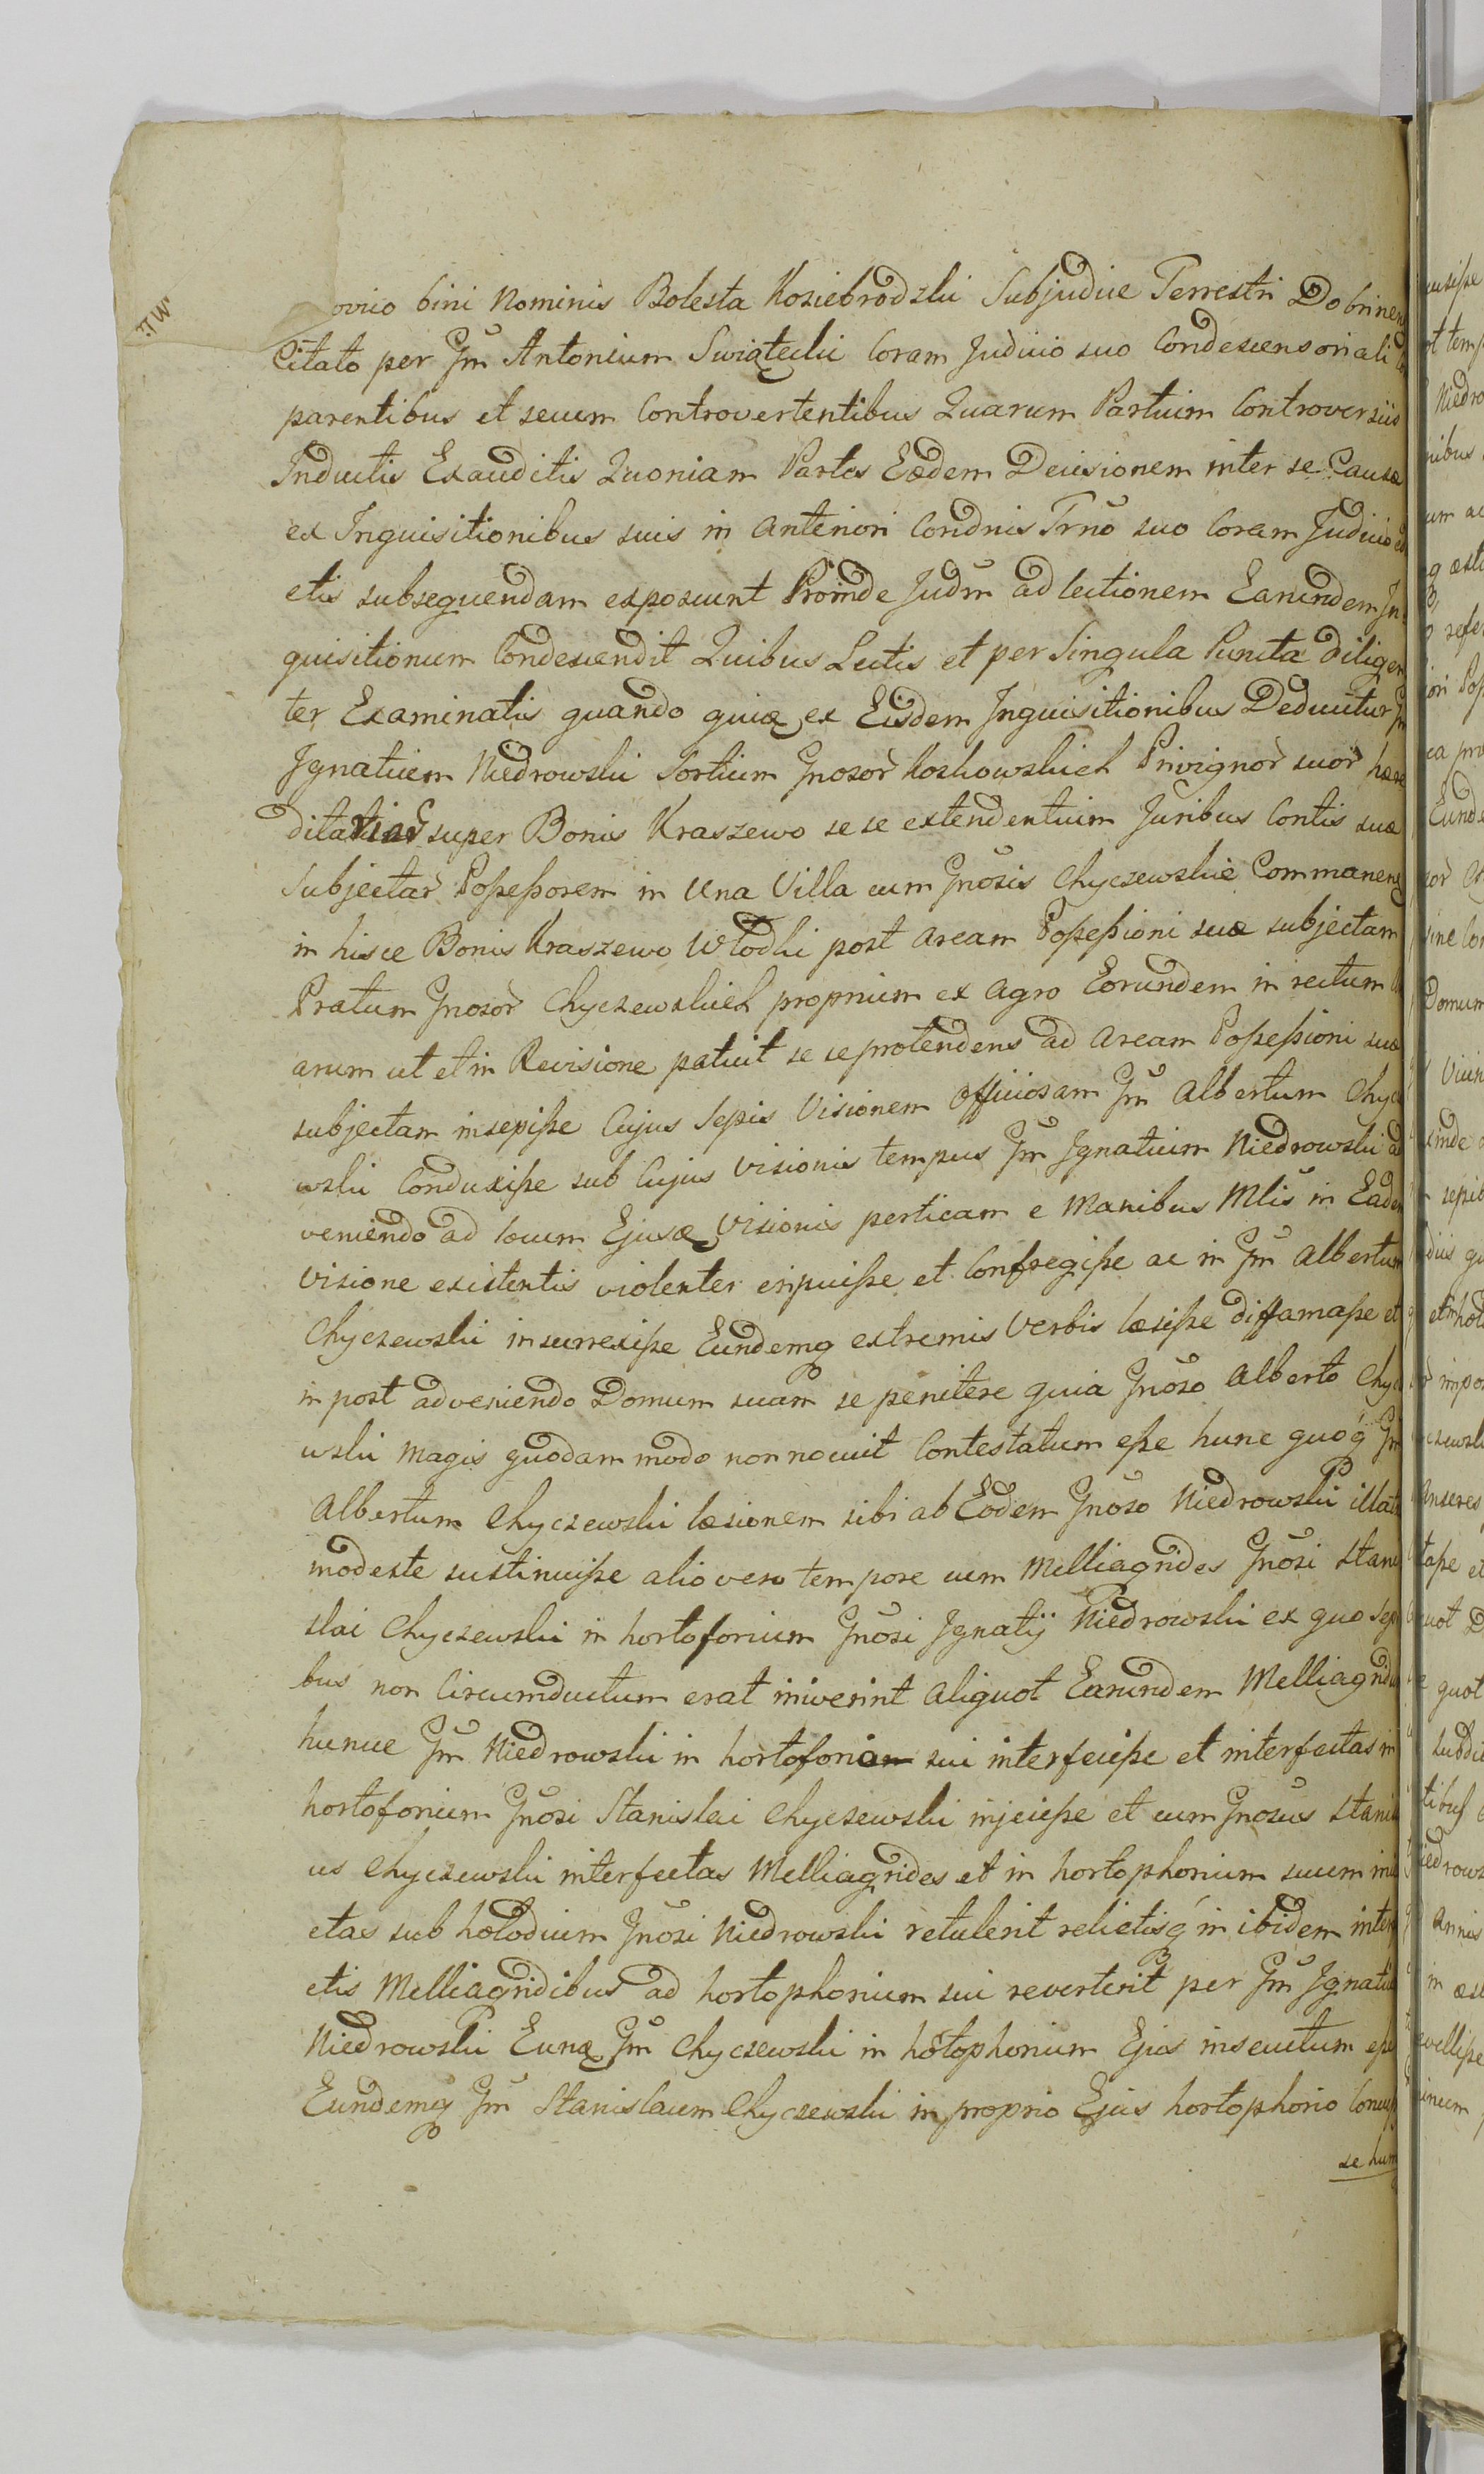 ovio bini Nominis Bolesta Kosiebrodzki Subjudice Terrestri Dobrinen
Citato per Gm̃ Antonium Swiątecki Coram Judicio suo Condescensoriali
parentibus et secum Controvertentibus Quarum Partium Controversiis
Inductis Exauditis Quoniam Partes Eædem Decisionem inter se Causæ
ex Inquisitionibus suis in anteriori Condnis Trño suo Coram Judicio
etis subsequendam exposcunt Proinde Judm̃ ad lectionem Earundem In
quisitionum Condescendit Quibus Lectis et per Singula Puncta diligen
ter Examinatis quando quidę ex Eisdem Inquisitionibus Deducitur
Ignatium Niedrowski Sortium Gnosor̃ Koskowskich Privignor̃ suor̃ hære
ditariar̃ super Bonis Kraszewo se se extendentium Juribus Contis suæ
Subjectar̃ Poſseſsorem in Una Villa cum Gnosis Chyczewskie Commanen
in hisce Bonis Kraszewo Włodki post aream Poſseſsioni suæ subjectam
Pratum Gnosor̃ Chyczewskich proprium ex agro Eorundem in rectum
arum ut et in Revisione patuit se se protendens ad aream Poſseſsioni suæ
subjectam insepiſse Cujus Sepis Visionem Officiosam Gm̃ Albertum Chyc
wski Conduxiſse sub Cujus Visionis tempus Gm̃ Ignatium Niedrowski ad
veniendo ad locum Ejusdę Visionis perticam e Manibus Mlis̃ in Eadem
Visione existentis violenter eripuiſse et Confregiſse ac in Gm̃ Albertum
Chyczewski insurrexiſse Eundemq extremis Verbis læsiſse diffamaſse et
in post adveniendo Domum suam se penitere quia Gnõso Alberto Chyc
wski magis quodam modo non nocuit Contestatum eſse hunc quoq́ Gm̃
Albertum Chyczewski læsionem sibi ab Eodem Gnoso Niedrowski illat
modeste sustinuiſse alio vero tempore cum Melliagrides Gnõsi Stani
slai Chyczewski in hortoforium Gnõsi Ignatij Niedrowski ex quo sepi
bus non Circumductum erat iniverint aliquot Earundem Melliagridu
hunce Gm̃ Niedrowski in hortoforium sui interfeciſse et interfectas in
hortoforium Gnõsi Stanislai Chyczewski injeciſse et cum Gnosus Stani
us Chyczewski interfectas Melliagrides et in hortophorium suum inj
etas sub hołodium Gnõsi Niedrowski retulerit relictisq́ in ibidem interf
etis Melliagridibus ad hortophorium sui reverterit per Gm̃ Ignatiu
Niedrowski Eundę Gm̃ Chyczewski in hõtophorium Ejus insecutum eſse
Eundemq́ Gm̃ Stanislaum Chyczewski in proprio Ejus hortophorio
se hum